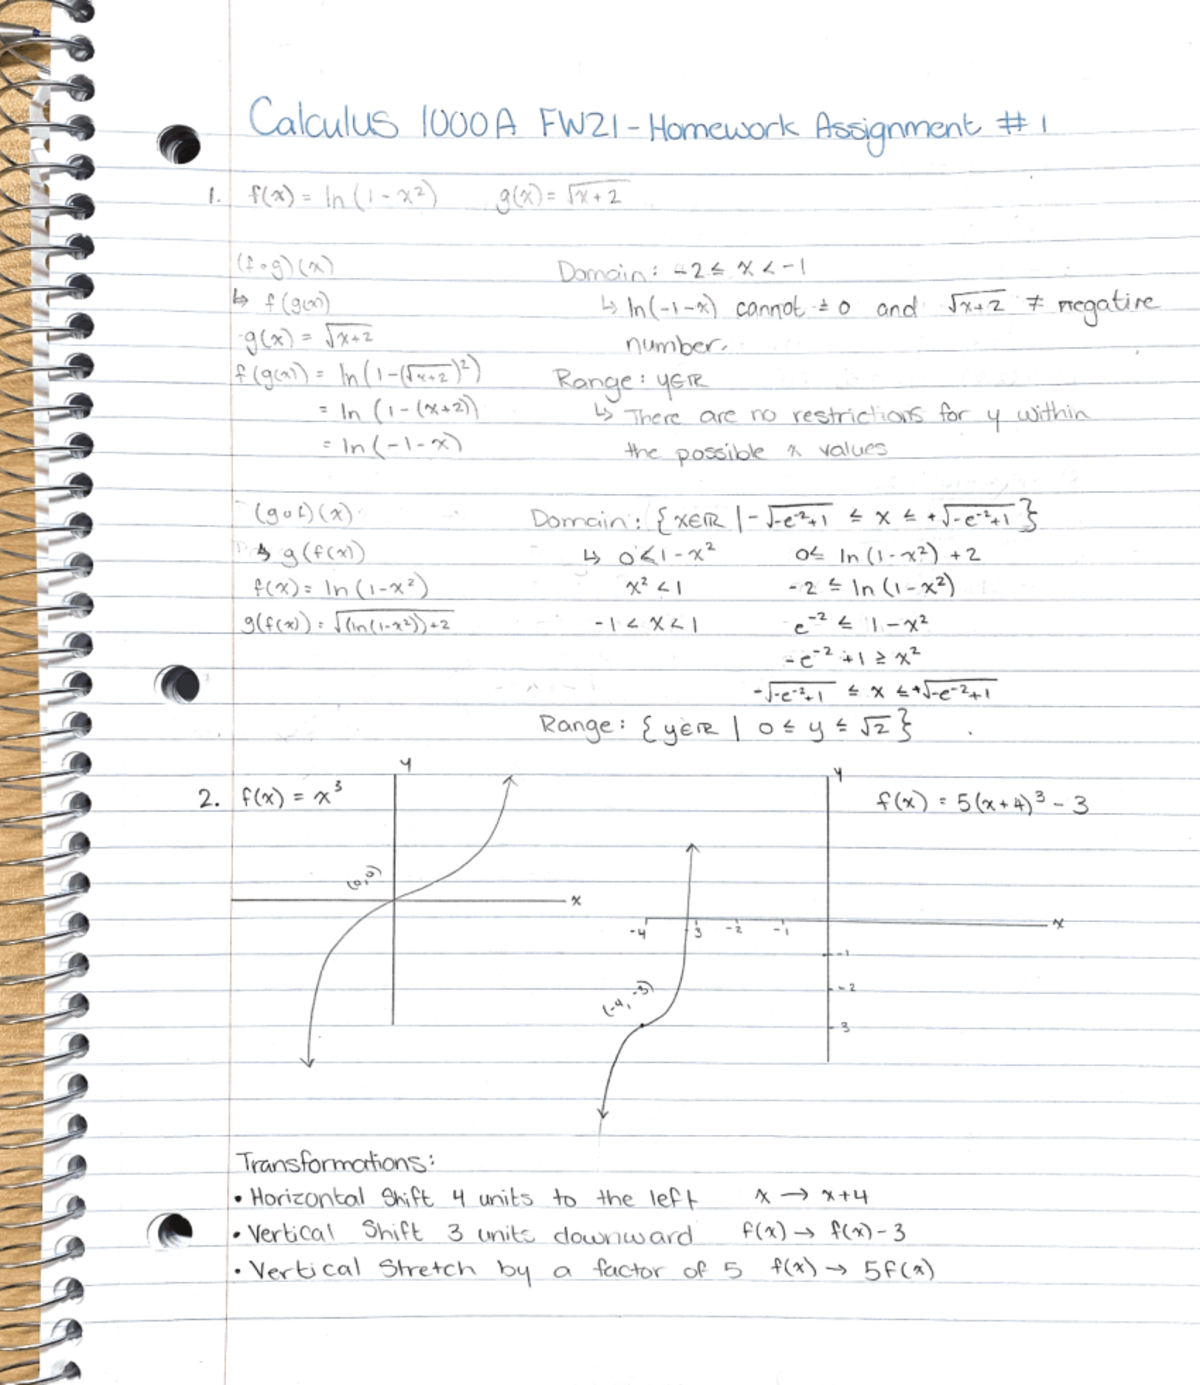 Calculus 1000A FW21 - Homework Assignment #1
1. f(x) = ln(1-x²) g(x) = √x+2
(f∘g)(x)
↳ f(g(x))
g(x) = √x+2
f(g(x)) = ln(1-(√x+2)²)
= ln(1-(x+2))
= ln(-1-x)
Domain: -2 ≤ x < -1
↳ ln(-1-x) cannot = 0 and √x+2 ≠ negative
number.
Range: y∈ℝ
↳ There are no restrictions for y within
the possible x values
(g∘f)(x)
↳ g(f(x))
f(x) = ln(1-x²)
g(f(x)) = √(ln(1-x²))+2
Domain: {x∈ℝ | -√-e⁻²+1 ≤ x ≤ +√-e⁻²+1}
↳ 0<1-x²
x² < 1
-1 < x < 1
0≤ ln(1-x²) + 2
-2 ≤ ln(1-x²)
e⁻² ≤ 1-x²
-e⁻² +1 ≥ x²
-√-e⁻²+1 ≤ x ≤ +√-e⁻²+1
Range: {y∈ℝ | 0 ≤ y ≤ √2}
2. f(x) = x³
y
(0,0)
x
y
f(x) = 5(x+4)³ - 3
x
-4 3 -2 -1
-1
-2
3
(-4, -3)
Transformations:
• Horizontal Shift 4 units to the left x → x+4
• Vertical Shift 3 units downward f(x) → f(x) - 3
• Vertical Stretch by a factor of 5 f(x) → 5f(x)